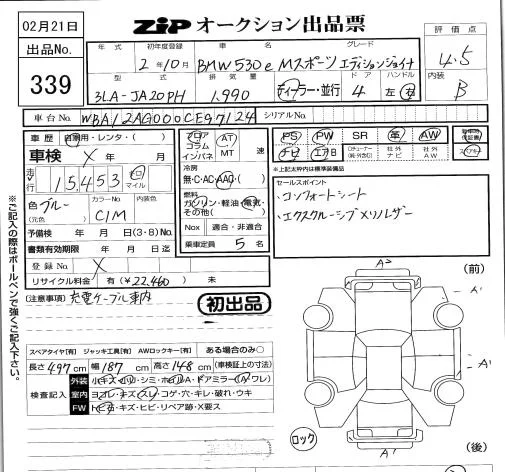 02月21日
ZIP オークション出品票
出品No.
339
年式 初年度登録 車名 グレード
2年10月 BMW 530e Mスポーツ エディションジョイ+
型式 排気量 ドア ハンドル
3LA-JA20PH 1,990 ディーラー・並行 4 左 右
評価点
4.5
内装
B
車台No. WBA12AG000CE97124 シリアルNo.
車歴 自家用・レンタ・( )
車検 X 年 月
走行 15,453 キロ マイル
色 ブルー (元色) カラーNo. C1M 内装色
予備検 年 月 日(3・8)No.
書類有効期限 年 月 日迄
登録No. X
リサイクル料金 有(¥22,460) 未
フロア コラム インパネ AT MT 速
冷房
無・C・AC・AAC・( )
燃料
ガソリン・軽油・電気・その他( )
Nox 適合・非適合
乗車定員 5 名
PS PW SR 革 AW
ナビ エアB 社外ナビ 社外AW
※上記太枠内は標準装備品
セールスポイント
・コンフォートシート
・エクスクルーシブメリノレザー
(注意事項) 充電ケーブル車内
初出品
スペアタイヤ[有] ジャッキ工具[有] AWロックキー[有] ある場合のみ○
長さ 497cm 幅 187cm 高さ 148cm (車検証上の寸法)
検査記入
外装 小キズ・小凹・シミ・ホイルA・ドアミラー(A・ワレ)
室内 ヨゴレ・キズ・スリ・コゲ・穴・キレ・破れ・ウキ
FW トビ石・キズ・ヒビ・リペア跡・X要ス
※ご記入の際はボールペンで強くご記入下さい。
(前)
A2
A1
A1
A1
ロック
(後)